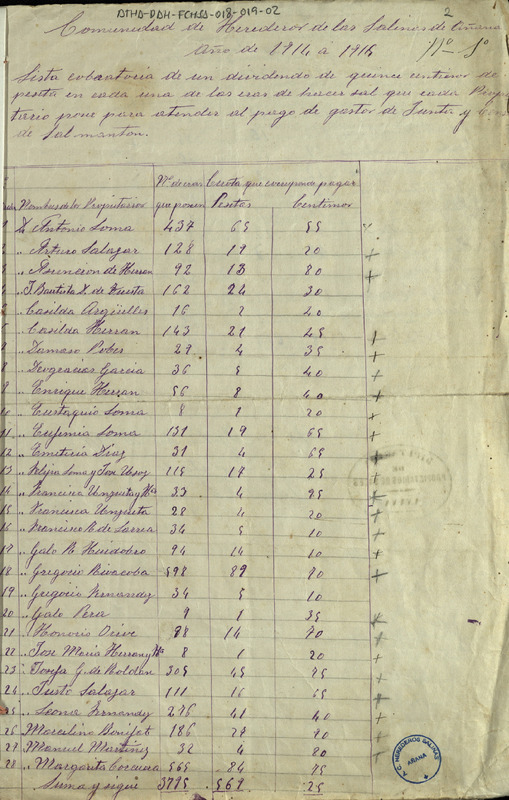 ATHA-DAH-FCHSA-018-019-02
2
Comunidad de Herederos de las Salinas de Añana
Año de 1914 a 1915
Lista cobratoria de un dividendo de quince centimos de
peseta en cada una de las eras de hacer sal que cada Propie
tario posee para atender al pago de gastos de Junta y
de Salmanton.
Nombres de los Propietarios Nº de eras que poseen Cuota que corresponde pagar Pesetas Centimos
1 D. Antonio Soma 437 65 55
2 " Arturo Salazar 128 19 20
3 " Asuncion de Herran 92 13 80
4 " J. Bautista de Huerta 162 24 30
5 " Casilda Argüelles 16 2 40
6 Casilda Herran 143 21 45
7 " Damaso Pobes 29 4 35
8 " Deogracias Garcia 36 5 40
9 " Enrique Herran 56 8 40
10 " Eustaquio Soma 8 1 20
11 " Eufemia Soma 131 19 65
12 " Emeteria Diaz 31 4 65
13 " Felipa Soma y Jose 115 17 25
14 " Francisca Unzueta y Hª 33 4 95
15 " Francisca Unzueta 28 4 20
16 " Francisco R. de Larrea 34 5 10
17 " Galo R. Huidobro 94 14 10
18 " Gregorio Rivacoba 598 89 70
19 " Gregorio Fernandez 34 5 10
20 " Galo Pera 9 1 35
21 " Honorio Orive 98 14 70
22 " Jose Maria Herran y Hª 8 1 20
23 " Josefa G. de Roldan 305 45 75
24 " Justo Salazar 111 16 65
25 " Leona Fernandez 276 41 40
26 " Marcelino Bonifat 186 27 90
27 " Manuel Martinez 32 4 80
28 " Margarita Corcuera 565 84 75
Suma y sigue 3795 569 25
A.C. HEREDEROS SALINAS
AÑANA